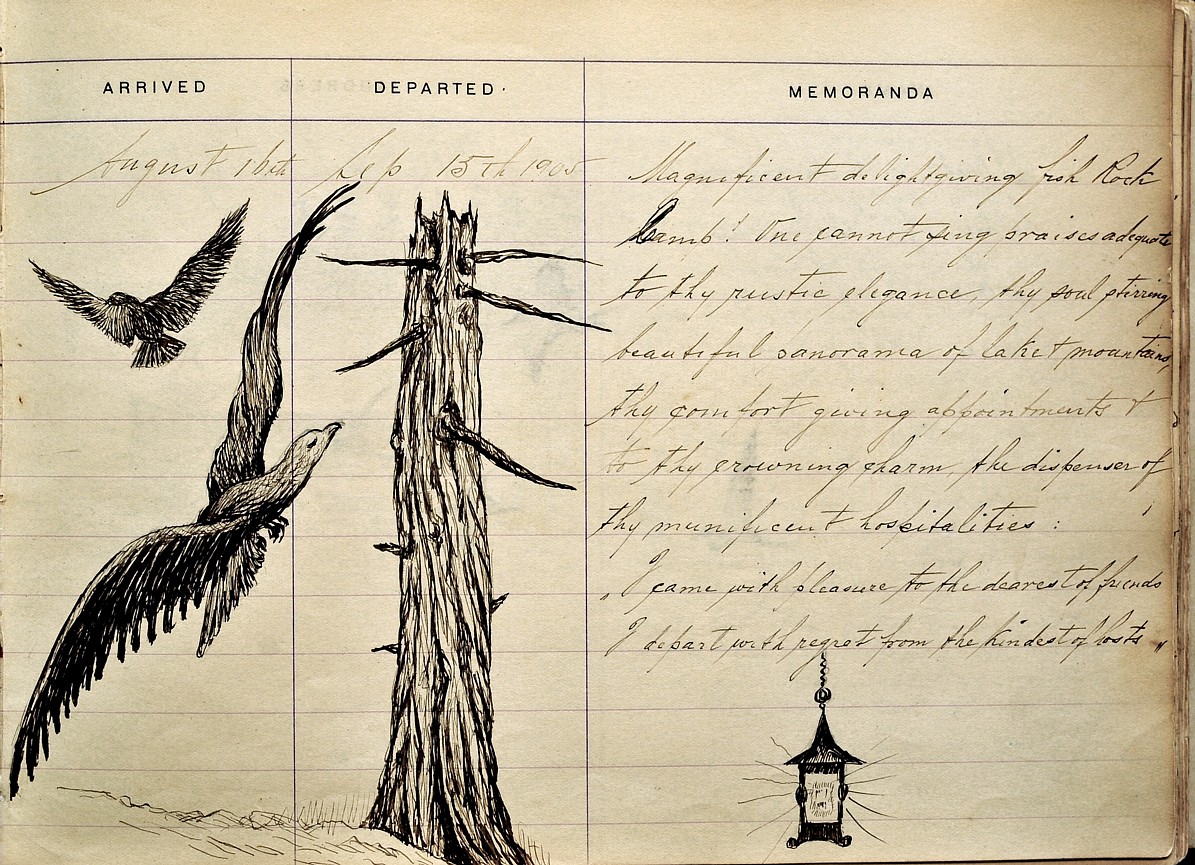 ARRIVED DEPARTED MEMORANDA
August 16th Sep 15th 1905
Magnificent delightgiving fish Rock
Camp! One cannot sing praises adequate
to thy rustic elegance, thy soul stirring
beautiful panorama of lake & mountains,
thy comfort giving appointments &
to thy crowning charm, the dispenser of
thy munificent hospitalities :
"I came with pleasure to the dearest of friends
I depart with regret from the kindest of hosts "